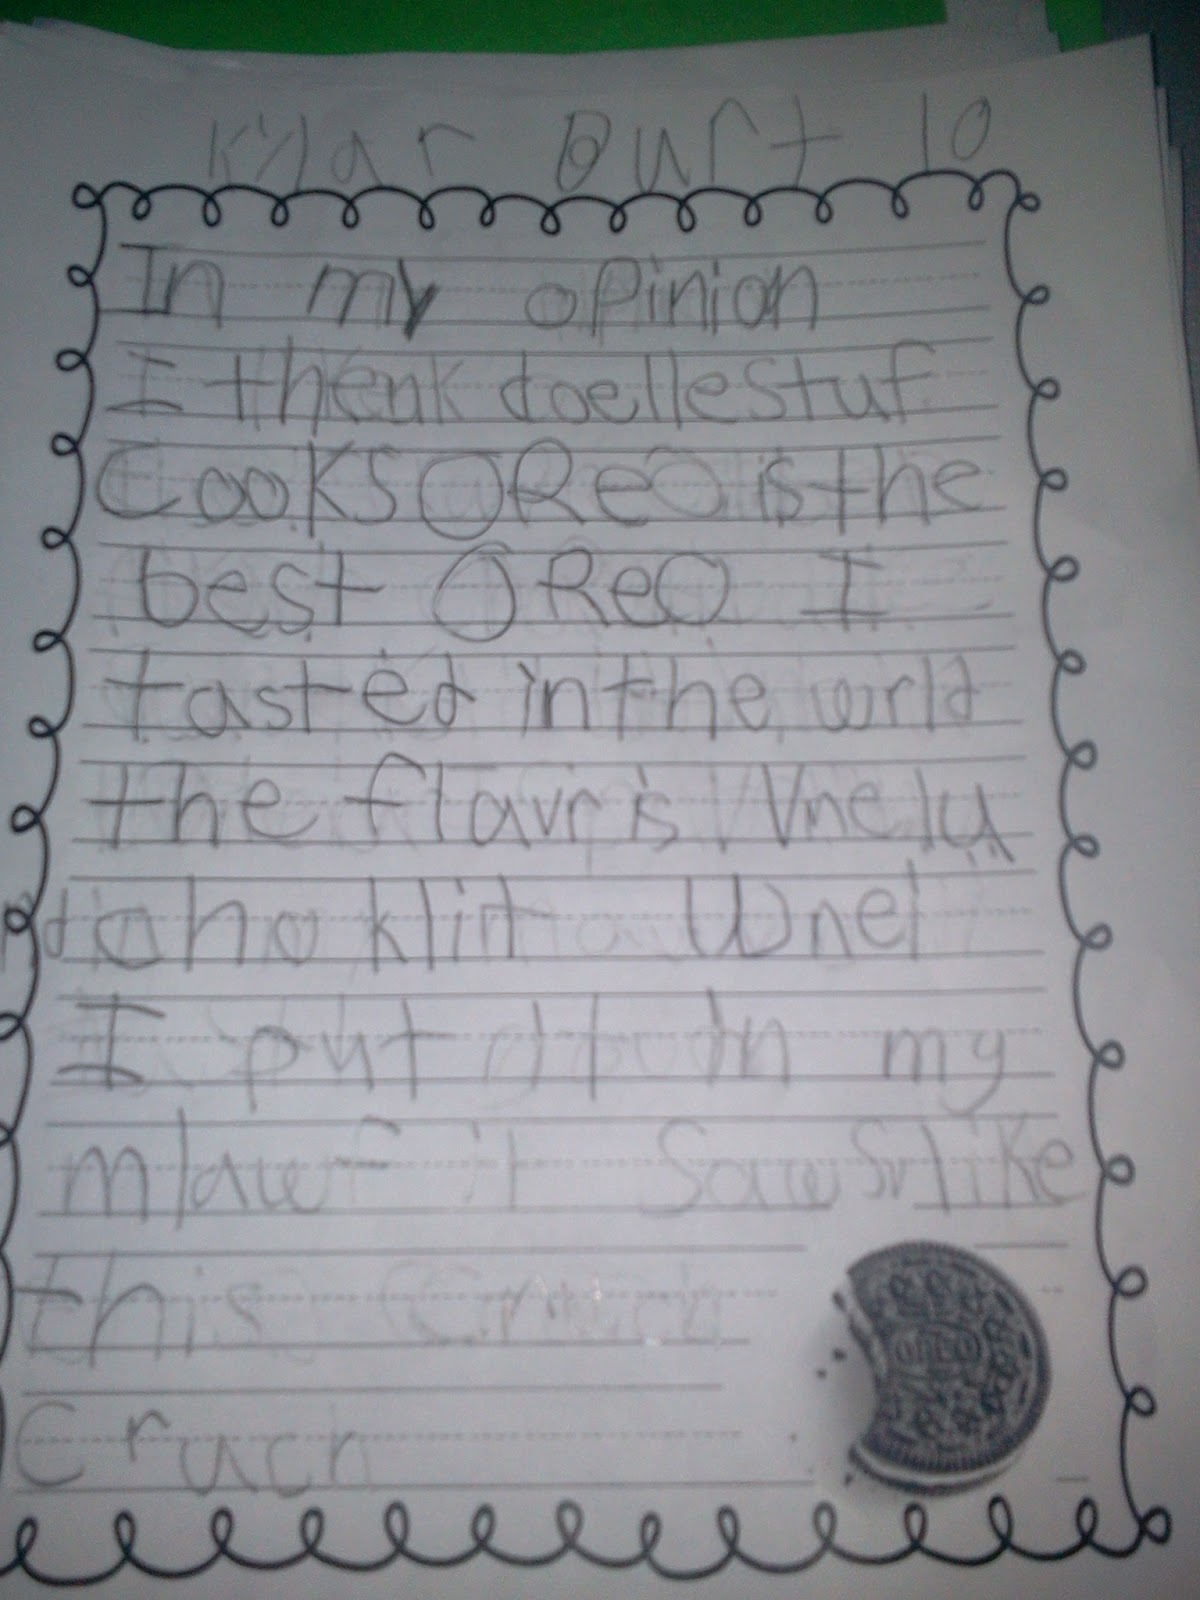 Kylar Burt 10
In my opinion
I thenk doellestuf
Cooks OReO is the
best OReO I
tasted in the world
the flavr is Vnelu
choklit Wnel
I put it in my
mlawf it sawsrlike
this Cruch
Cruch
OREO